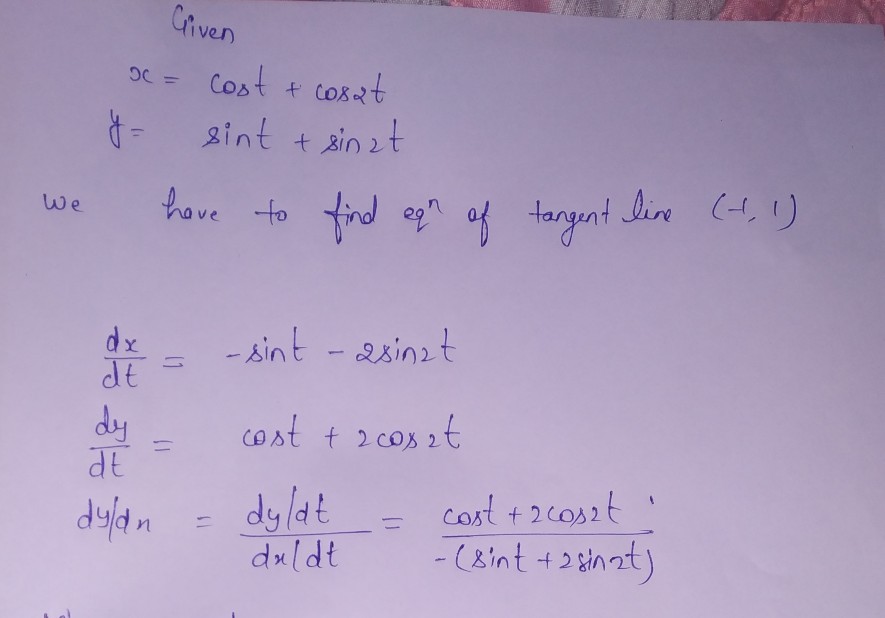 Given
x = cost + cos2t
y = sint + sin2t
we have to find eqⁿ of tangent line (-1, 1)
dx/dt = -sint - 2sin2t
dy/dt = cost + 2cos2t
dy/dx = dy/dt / dx/dt = cost + 2cos2t / -(sint + 2sin2t)